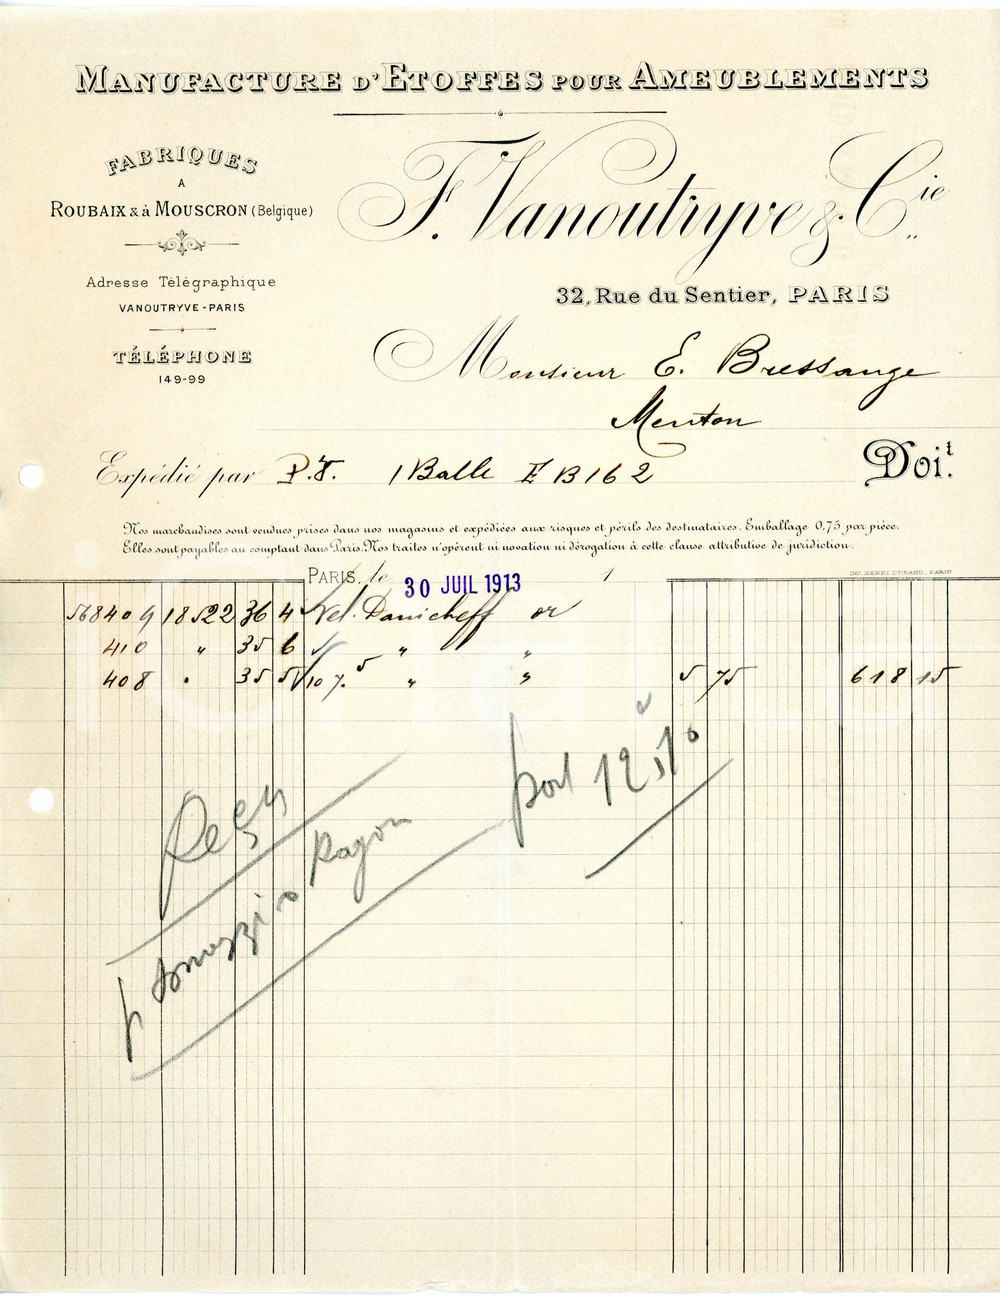 MANUFACTURE D'ETOFFES POUR AMEUBLEMENTS
FABRIQUES
A
ROUBAIX & à MOUSCRON (Belgique)
Adresse Télégraphique
VANOUTRYVE-PARIS
TÉLÉPHONE
149-99
F. Vanoutryve & Cie
32, Rue du Sentier, PARIS
Monsieur E. Bressange
Menton
Expédié par P.V. 1 Balle E B 162
Doit
Nos marchandises sont vendues prises dans nos magasins et expédiées aux risques et périls des destinataires. Emballage 0,75 par pièce.
Elles sont payables au comptant dans Paris. Nos traites n'opèrent ni novation ni dérogation à cette clause attributive de juridiction.
IMP. HENRI DURAND, PARIS
PARIS, le 30 JUIL 1913 1
568409 18522 36 4 Vel. Danicheff or
410 " 35 6 " "
408 " 35 5 107.5 " " 5 75 618 15
port 12
Rayon